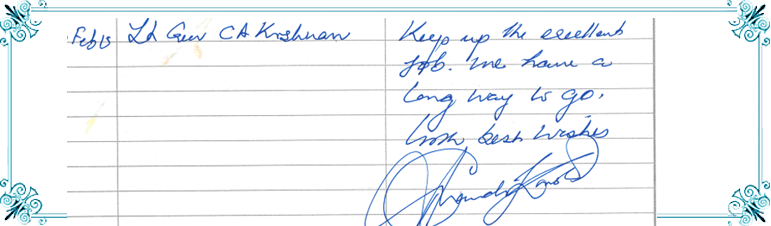 Feb 15 Lt Gen C A Krishnan Keep up the excellent
job. We have a
long way to go.
With best wishes